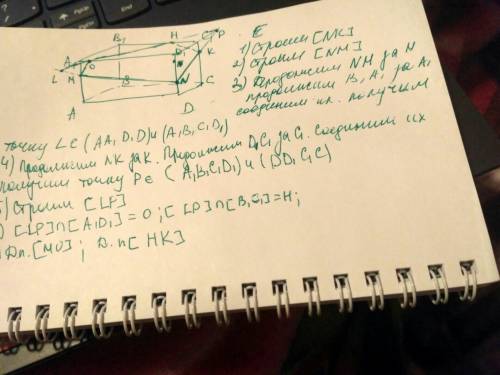 B₁ H C₁ P
A₁ O D₁ K
L M B N C
A D
1) Строим [MK]
2) Строим [NM]
3) Продолжим NM за M
продолжим B₁A₁ за A₁
соединим их. получим
точку L ∈ (AA₁D₁D) и (A₁B₁C₁D₁)
4) Продолжим NK за K. Продолжим D₁C₁ за C₁. соединим их
получим точку P ∈ (A₁B₁C₁D₁) и (DD₁C₁C)
5) Строим [LP]
) [LP]∩[A₁D₁] = O; [LP]∩[B₁C₁] = H;
Д.п. [MO]; Д.п [HK]